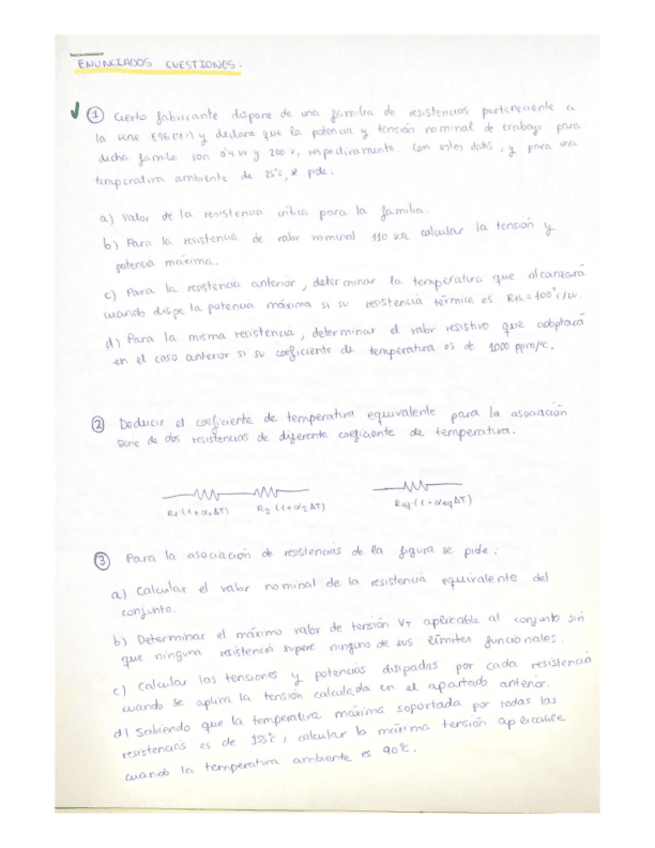 ENUNCIADOS CUESTIONES.
① Cierto fabricante dispone de una familia de resistencias perteneciente a
la serie E96 (±1%) y declara que la potencia y tensión nominal de trabajo para
dicha familia son 0'4 W y 200 V, respectivamente. Con estos datos, y para una
temperatura ambiente de 25°C, se pide:
a) Valor de la resistencia crítica para la familia.
b) Para la resistencia de valor nominal 110 kΩ calcular la tensión y
potencia máxima.
c) Para la resistencia anterior, determinar la temperatura que alcanzará
cuando disipe la potencia máxima si su resistencia térmica es Rth = 100°C/W.
d) Para la misma resistencia, determinar el valor resistivo que adoptará
en el caso anterior si su coeficiente de temperatura es de 1000 ppm/°C.
② Deducir el coeficiente de temperatura equivalente para la asociación
serie de dos resistencias de diferente coeficiente de temperatura.
R1·(1+α1ΔT) R2·(1+α2ΔT) Req·(1+αeqΔT)
③ Para la asociación de resistencias de la figura se pide:
a) Calcular el valor nominal de la resistencia equivalente del
conjunto.
b) Determinar el máximo valor de tensión VT aplicable al conjunto sin
que ninguna resistencia supere ninguno de sus límites funcionales.
c) Calcular las tensiones y potencias disipadas por cada resistencia
cuando se aplica la tensión calculada en el apartado anterior.
d) Sabiendo que la temperatura máxima soportada por todas las
resistencias es de 155°C, calcular la máxima tensión aplicable
cuando la temperatura ambiente es 90°C.